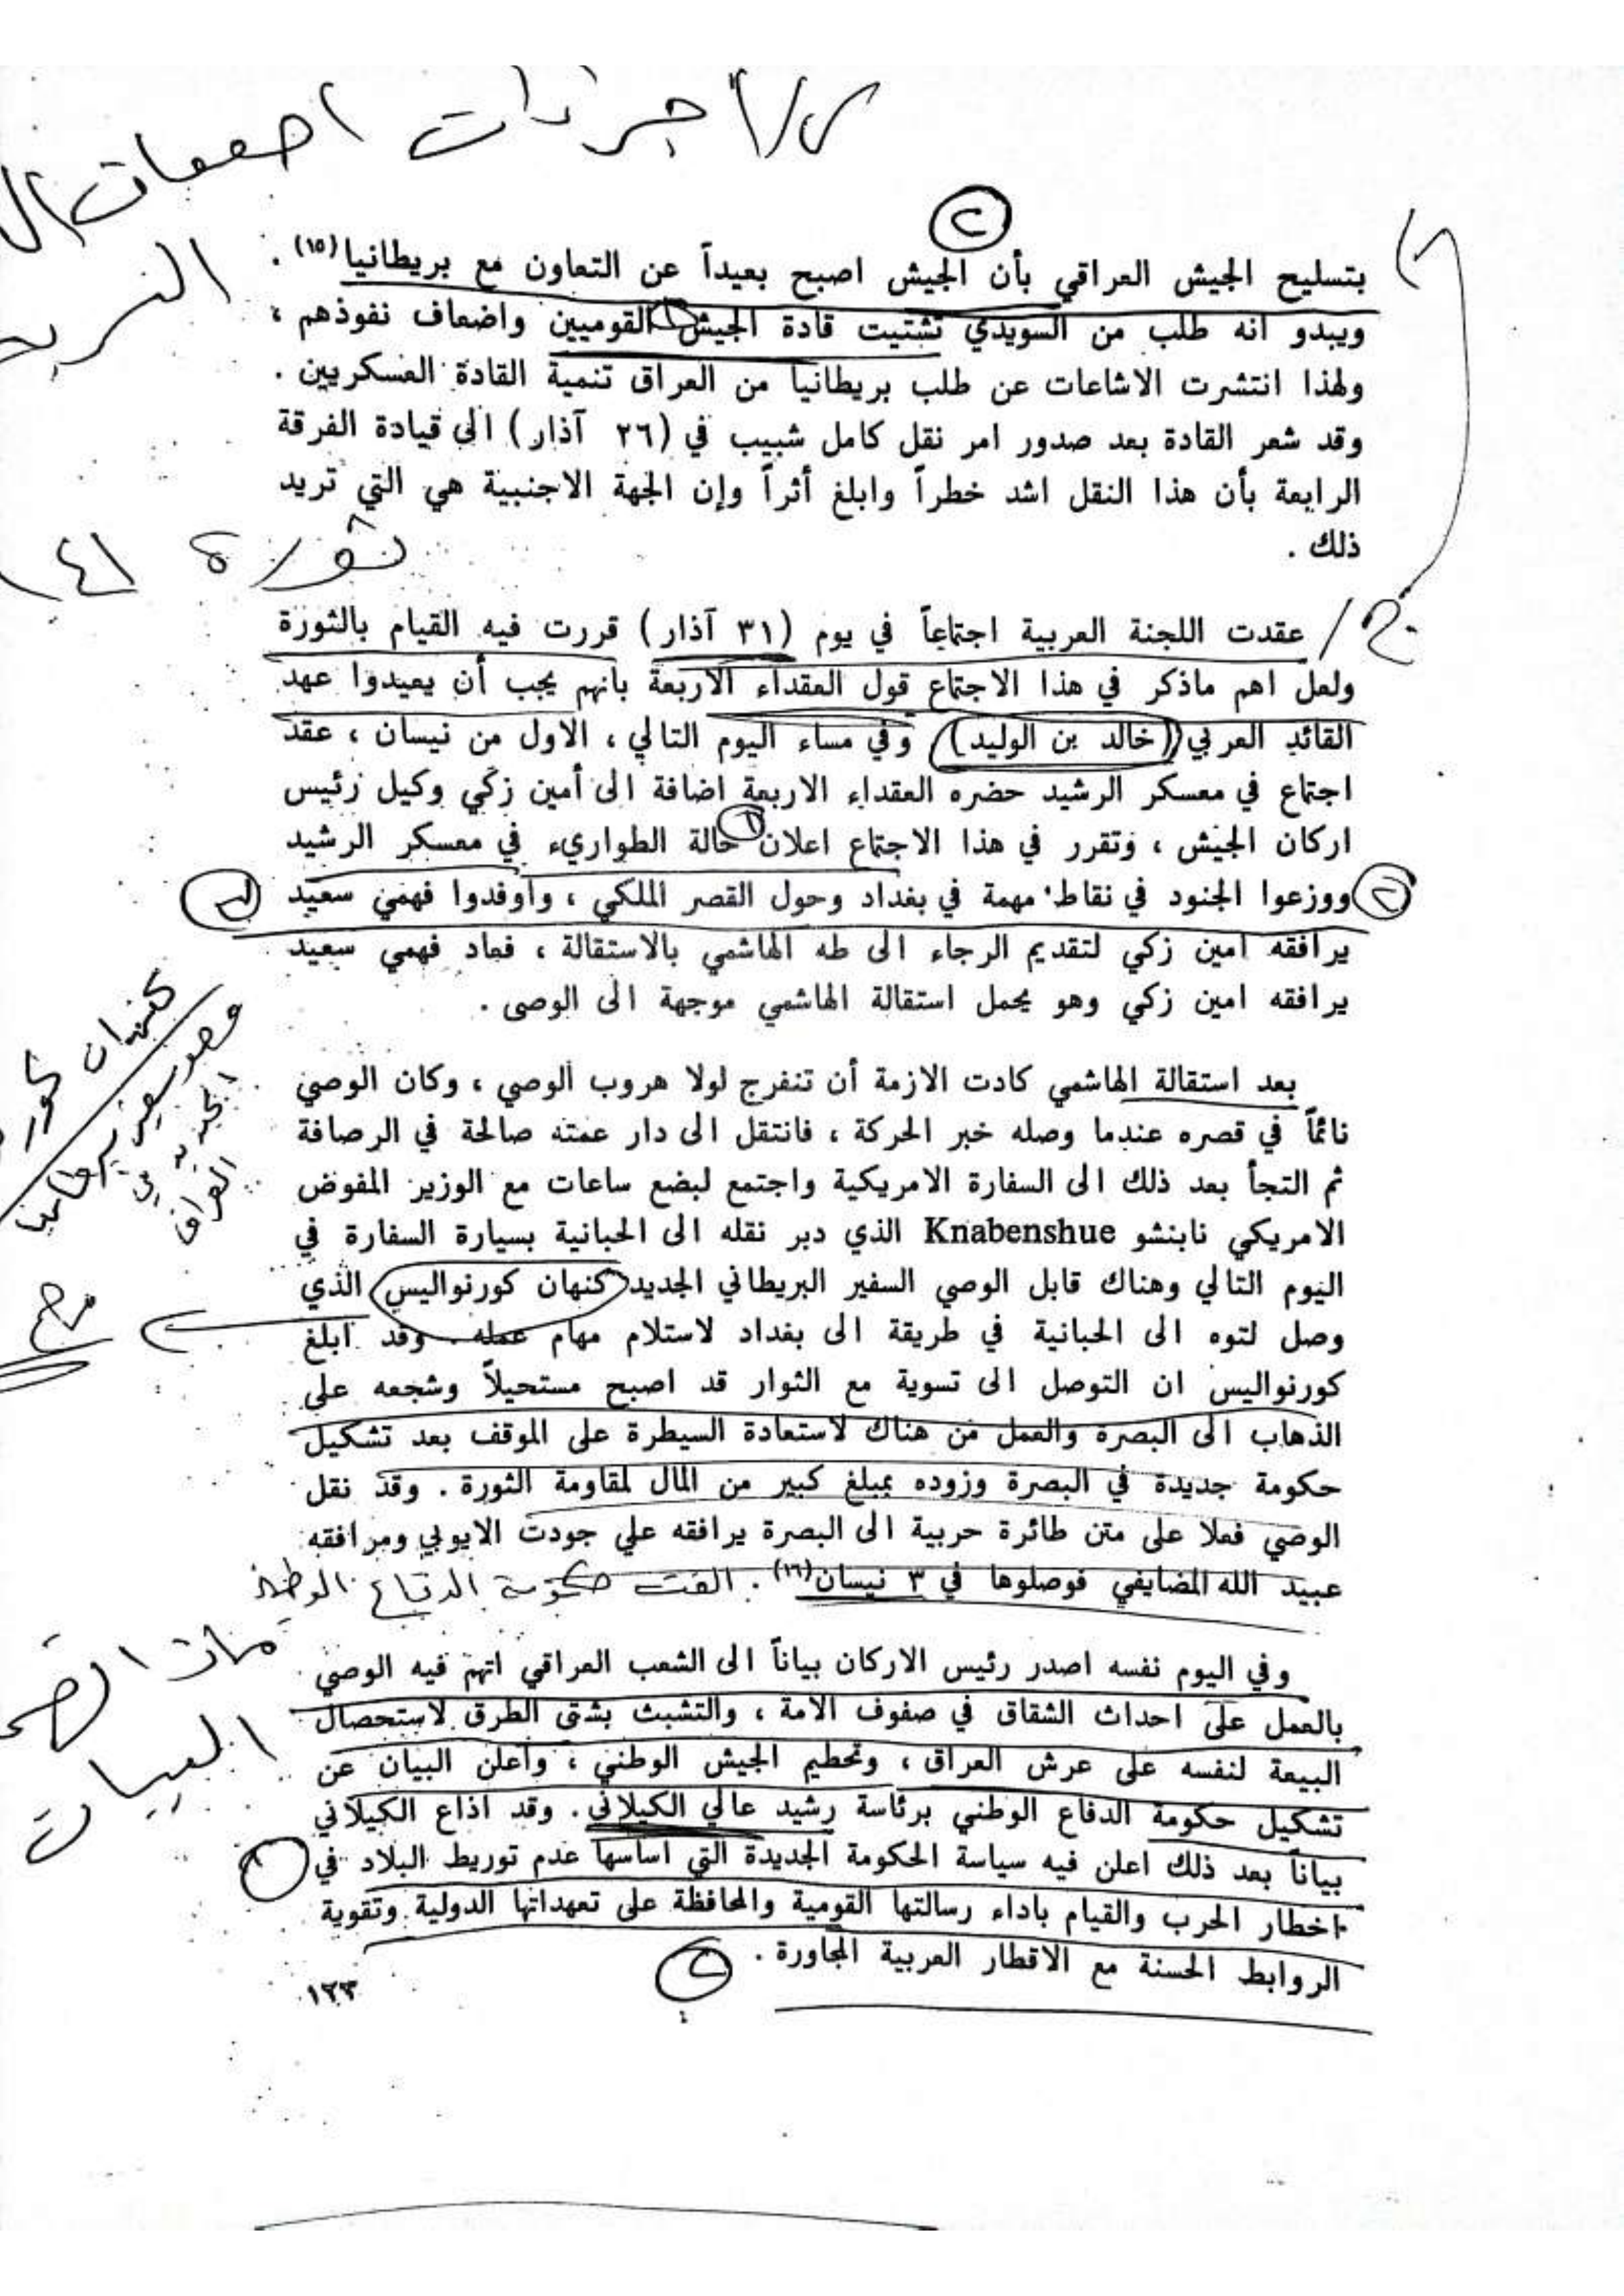 س/ اجراءات
٢
بتسليح الجيش العراقي بأن الجيش اصبح بعيداً عن التعاون مع بريطانيا(١٥) .
ويبدو انه طلب من السويدي تشتيت قادة الجيش القوميين واضعاف نفوذهم ،
ولهذا انتشرت الاشاعات عن طلب بريطانيا من العراق تنمية القادة العسكريين .
وقد شعر القادة بعد صدور امر نقل كامل شبيب في (٢٦ آذار) الى قيادة الفرقة
الرابعة بأن هذا النقل اشد خطراً وابلغ أثراً وإن الجهة الاجنبية هي التي تريد
ذلك .
ثورة ٤١
ج/ عقدت اللجنة العربية اجتماعاً في يوم (٣١ آذار) قررت فيه القيام بالثورة
ولعل اهم ماذكر في هذا الاجتماع قول العقداء الاربعة بانهم يجب أن يعيدوا عهد
القائد العربي (خالد بن الوليد) وفي مساء اليوم التالي ، الاول من نيسان ، عقد
اجتماع في معسكر الرشيد حضره العقداء الاربعة اضافة الى أمين زكي وكيل رئيس
اركان الجيش ، وتقرر في هذا الاجتماع اعلان ١ حالة الطواريء في معسكر الرشيد
٢ ووزعوا الجنود في نقاط مهمة في بغداد وحول القصر الملكي ، وأوفدوا فهمي سعيد
يرافقه امين زكي لتقديم الرجاء الى طه الهاشمي بالاستقالة ، فعاد فهمي سعيد
يرافقه امين زكي وهو يحمل استقالة الهاشمي موجهة الى الوصى .
وهو سفير بريطانيا
الجديد في
العراق
بعد استقالة الهاشمي كادت الازمة أن تنفرج لولا هروب الوصي ، وكان الوصي
نائماً في قصره عندما وصله خبر الحركة ، فانتقل الى دار عمته صالحة في الرصافة
ثم التجأ بعد ذلك الى السفارة الامريكية واجتمع لبضع ساعات مع الوزير المفوض
الامريكي نابنشو Knabenshue الذي دبر نقله الى الحبانية بسيارة السفارة في
اليوم التالي وهناك قابل الوصي السفير البريطاني الجديد كنهان كورنواليس الذي
وصل لتوه الى الحبانية في طريقة الى بغداد لاستلام مهام عمله . وقد ابلغ
كورنواليس ان التوصل الى تسوية مع الثوار قد اصبح مستحيلاً وشجعه على
الذهاب الى البصرة والعمل من هناك لاستعادة السيطرة على الموقف بعد تشكيل
حكومة جديدة في البصرة وزوده بمبلغ كبير من المال لمقاومة الثورة . وقد نقل
الوصي فعلا على متن طائرة حربية الى البصرة يرافقه علي جودت الايوبي ومرافقه
عبيد الله المضايفي فوصلوها في ٣ نيسان(١٦) . الفت حكومة الدفاع الوطني
وفي اليوم نفسه اصدر رئيس الاركان بياناً الى الشعب العراقي اتهم فيه الوصي
بالعمل على احداث الشقاق في صفوف الامة ، والتشبث بشتى الطرق لاستحصال
البيعة لنفسه على عرش العراق ، وتحطيم الجيش الوطني ، وأعلن البيان عن
تشكيل حكومة الدفاع الوطني برئاسة رشيد عالي الكيلاني . وقد اذاع الكيلاني
بياناً بعد ذلك اعلن فيه سياسة الحكومة الجديدة التي اساسها عدم توريط البلاد في ١
اخطار الحرب والقيام باداء رسالتها القومية والمحافظة على تعهداتها الدولية وتقوية
الروابط الحسنة مع الاقطار العربية المجاورة . ٢
١٢٣